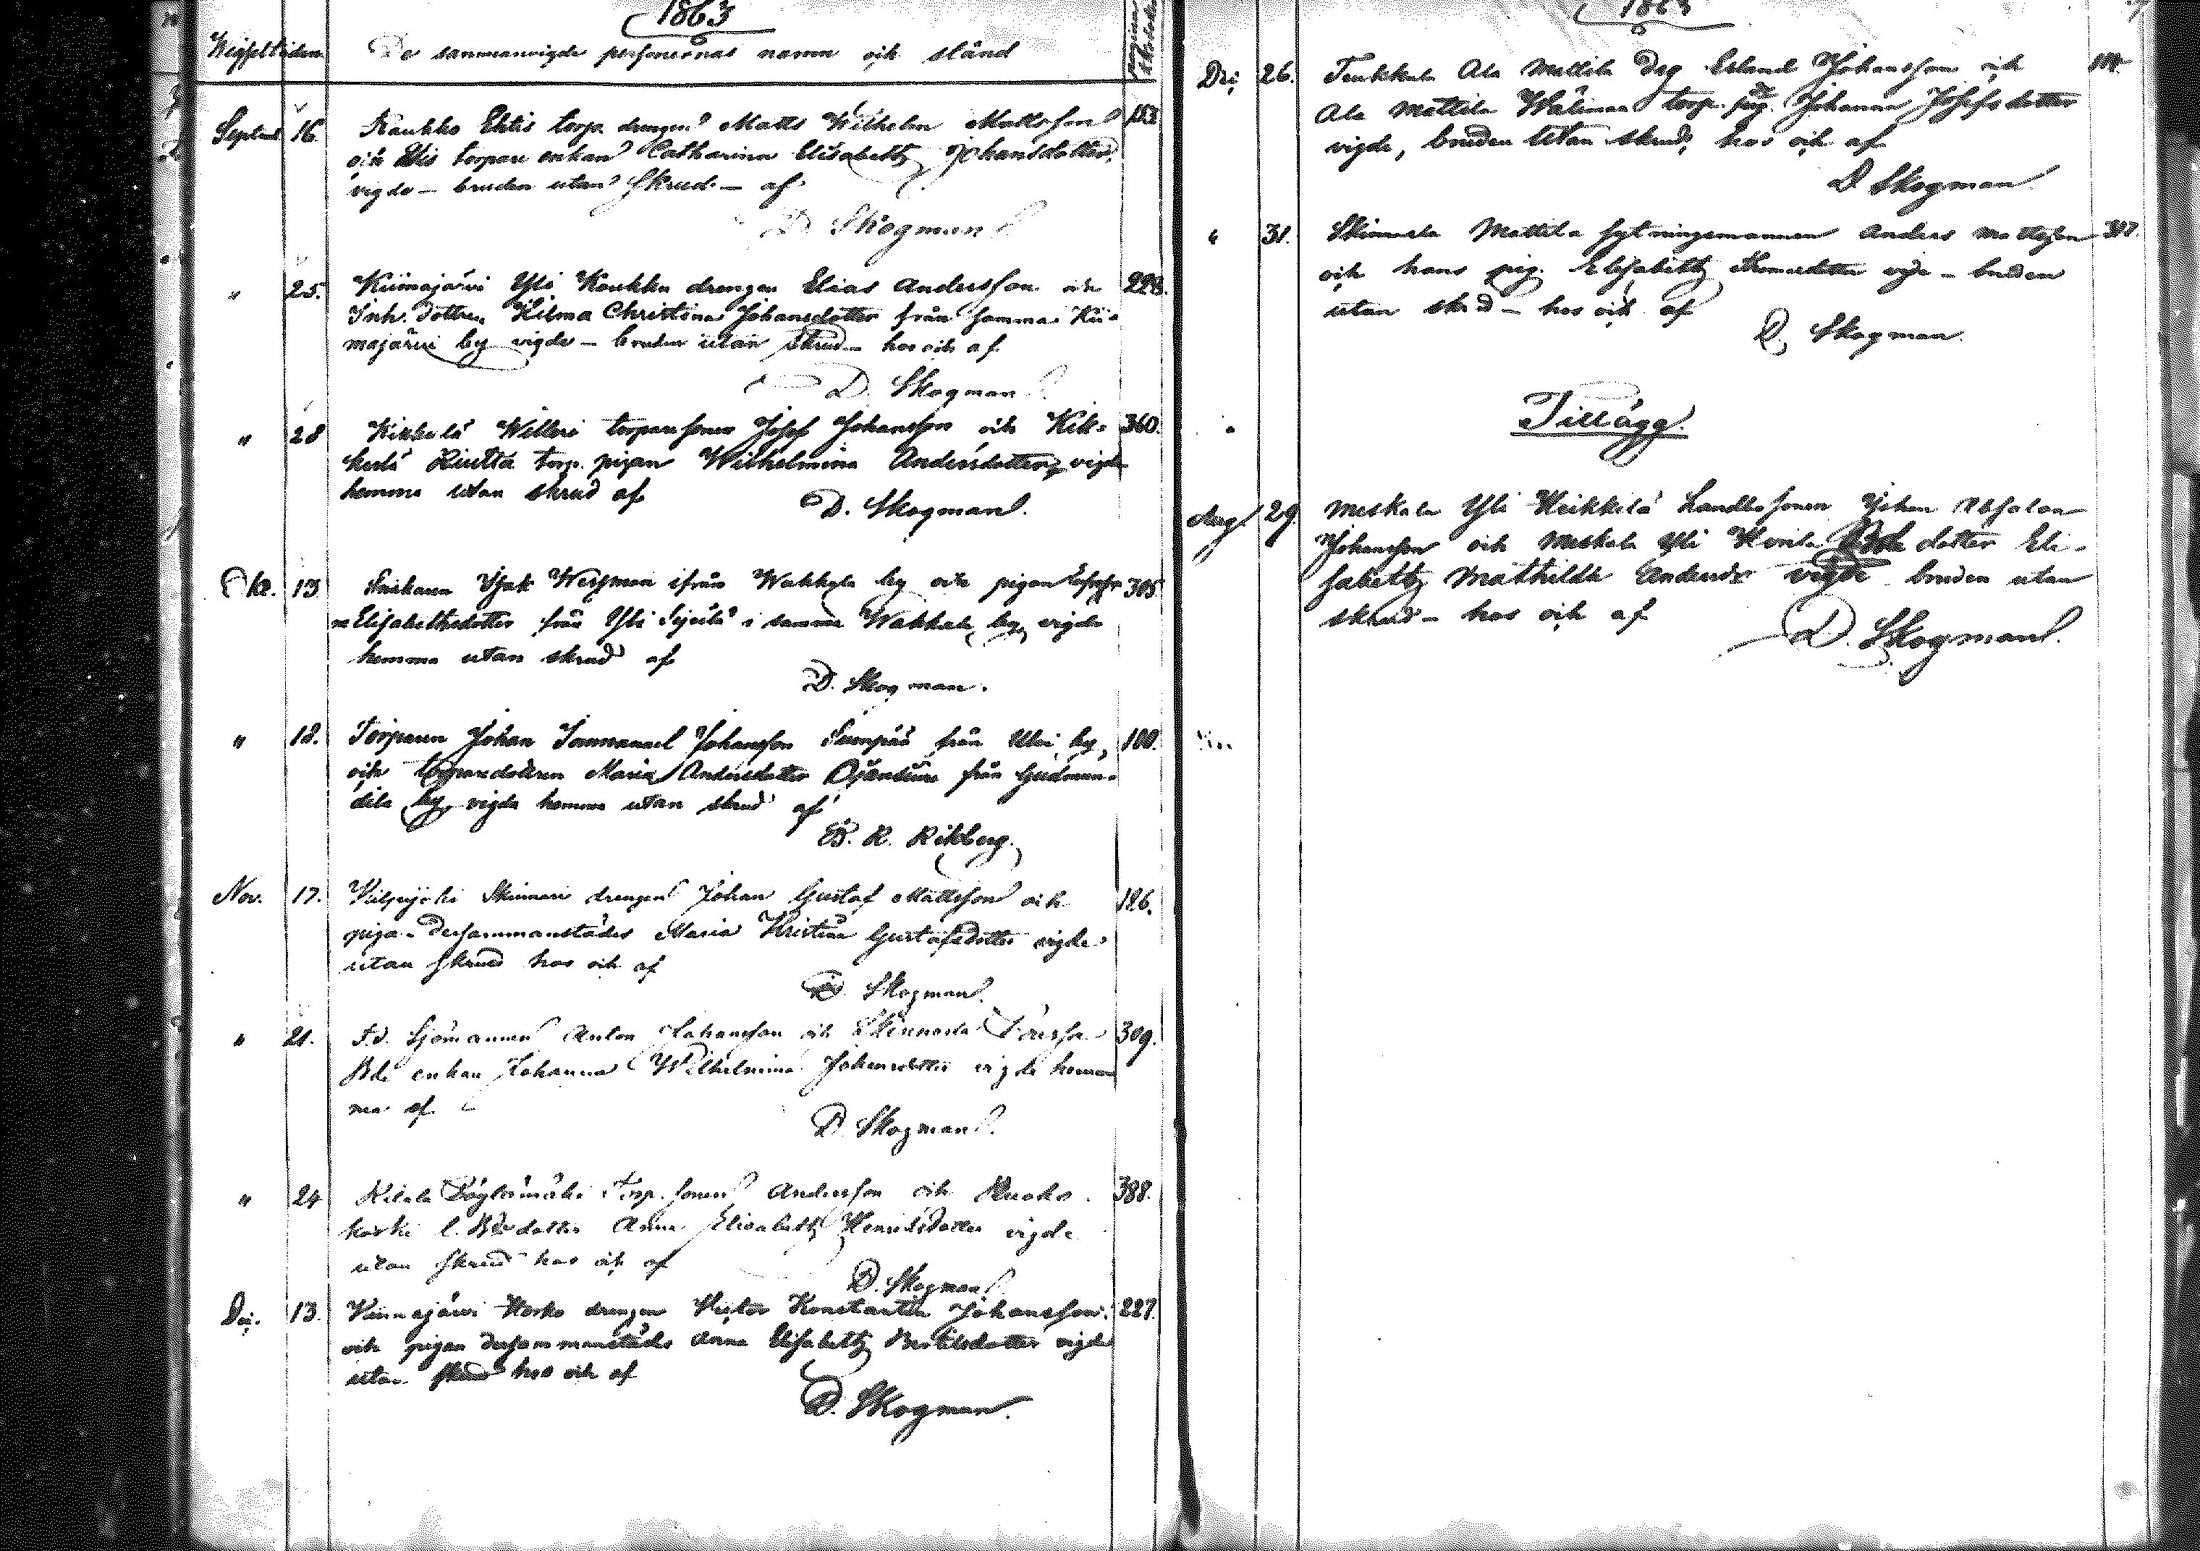 1863
Wigseltiden De sammanvigde personernas namn och stånd
Septemb. 16. Kaukko Ehtis torp. drengen Matts Wilhelm Mattsson 153
och torpare enkan Catharina Elisabeth Johansdotter,
vigde – bruden utan skrud – af
D. Skogman
" 25. Kiimajärvi Yli Koukku drengen Elias Andersson och
Inh. dottren Hilma Christina Johansdotter från samma Kii-
majärvi by vigde – bruden utan skrud – hos och af
D. Skogman
" 28 Willeri torparesonen Josef Johansson och Kik- 360.
torp. pigan Wilhelmina Andersdotter, vigde
hemma utan skrud af
D. Skogman
13 Isak Wegman ifrån by och pigan 305
Elisabethsdotter från Yli i samma by, vigde
hemma utan skrud af
D. Skogman.
" 18. Torparen Johan Immanuel Johansson från by, 100.
och torparedottren Maria Andersdotter från Gudmun-
dila by, vigde hemma utan skrud af
R. Rikberg.
Nov. 17. Kilpijoki Skinnari drengen Johan Gustaf Mattsson och 126.
pigan dersammanstädes Maria Kristina Gustafsdotter vigde
utan skrud hos och af
D. Skogman
" 21. F.d. Sjömannen Anton Johansson och Skinnarla 309.
enkan Johanna Wilhelmina Johansdotter vigde hem-
ma af
D. Skogman
" 24 Kilala Torp. sonen Andersson och 388.
dotter Anna Elisabeth Henriksdotter vigde
utan skrud hos och af
D. Skogman
Dec. 13. Kiimajärvi drengen Victor Konstantin Johansson 227.
och pigan dersammanstädes Anna Elisabeth Bertilsdotter vigde
utan skrud hos och af
D. Skogman.
1863
Dec. 26. Ala Mattila drg Erland Johansson och
Ala Mattila torp. pig. Johanna Josefsdotter
vigde, bruden utan skrud, hos och af
D. Skogman
" 31. Skinnarla Mattila sytningsmannen Anders Mattsson
och hans pig. Elisabeth Thomasdotter vigde – bruden
utan skrud – hos och af
D. Skogman.
Tillägg.
Aug. 29. Meskala Yli Heikkilä Landbosonen Johan Absalon
Johansson och Meskala Yli dotter Eli-
sabeth Mathilda Andersdr vigde bruden utan
skrud – hos och af
D. Skogman.